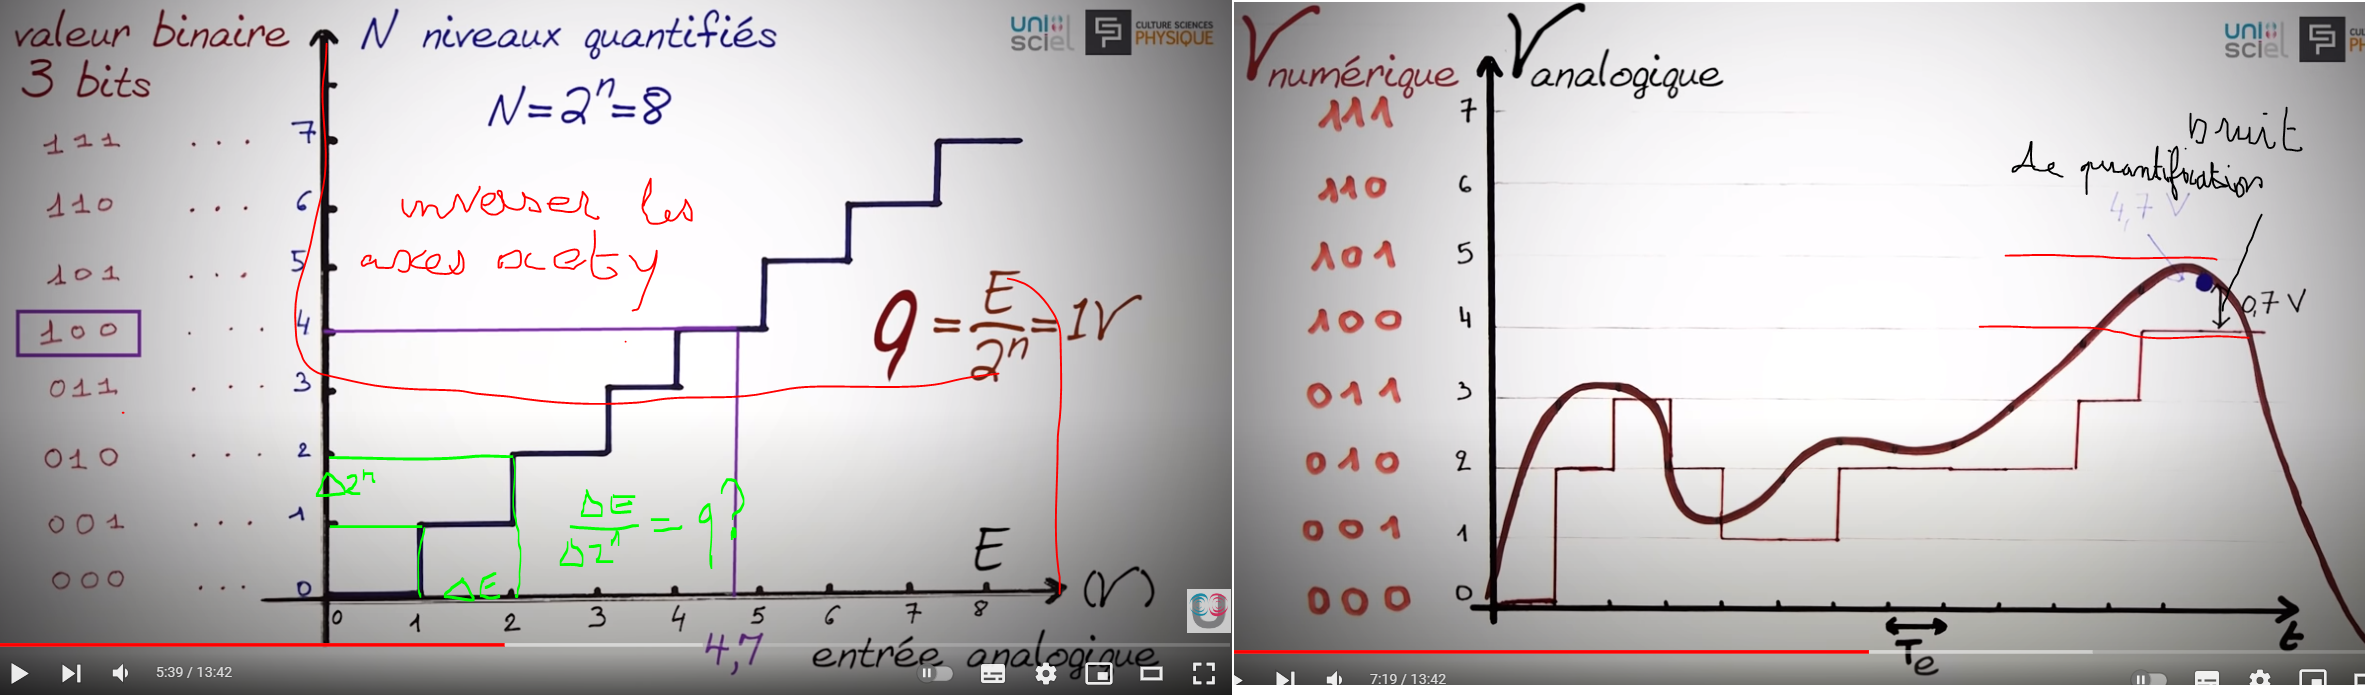 valeur binaire
3 bits
N niveaux quantifiés
N = 2ⁿ = 8
uni
sciel
CULTURE SCIENCES
PHYSIQUE
111 ... 7
110 ... 6
101 ... 5
100 ... 4
011 ... 3
010 ... 2
001 ... 1
000 ... 0
inverser les
axes x et y
q = E/2ⁿ = 1V
Δ2ⁿ
ΔE/Δ2ⁿ = q ?
ΔE
E
(V)
0 1 2 3 4 5 6 7 8
4,7
entrée analogique
5:39 / 13:42
Vnumérique
Vanalogique
uni
sciel
111 7
110 6
101 5
100 4
011 3
010 2
001 1
000 0
bruit
de quantification
4,7 V
0,7 V
Te
t
7:19 / 13:42